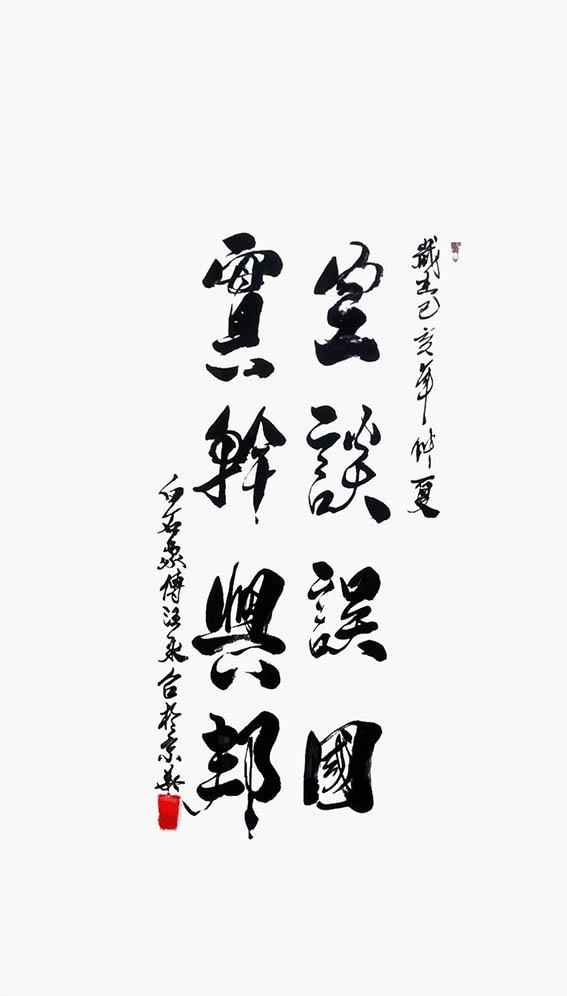 歲在己亥年仲夏
空談誤國
實幹興邦
白石家傳汪永合於京華